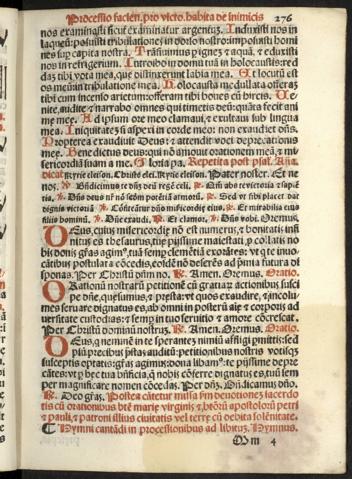 Processio facien. pro victo. habita de inimicis 276
nos examinasti sicut examinatur argentuʒ. Induxisti nos in
laqueū: posuisti tribulatiōes in dorso nostro: imposuisti homi
nes sup capita nostra. Transiuimus p ignez ⁊ aquā. ⁊ eduxisti
nos in refrigerium. Introibo in domū tuā in holocaustis: red
daʒ tibi vota mea, que distinxerunt labia mea. Et locutū est
os meū: in tribulatione mea. Holocausta medullata offeraʒ
tibi cum incenso arietum: offeram tibi boues cū hircis. Ve
nite, audite ⁊ narrabo omnes qui timetis deū: quāta fecit ani
me mee. Ad ipsum ore meo clamaui, ⁊ exultaui sub lingua
mea. Iniquitateʒ si aspexi in corde meo: non exaudiet dn̄s.
Propterea exaudiuit Deus: ⁊ attendit voci deprecationis
mee. Benedictus deus: qui nō amouit orationem meā, ⁊ mi-
sericordiā suam a me. Gloria pa. Repetita post psal. Aña.
dicat Kyrie eleison. Christe elei. Kyrie eleison. Pater noster. Et ne
nos.
filios hominū. Dn̄e exaudi. Et clamor. Dn̄s vobi. Oremus.
DEus, cuius misericordię nō est numerus, ⁊ bonitatis infi
nitus es thesaurus, tuę pijssime maiestati, p collatis no
bis donis grās agim⁹, tuā semp clemētiā exorātes: vt q̄ te inuo
cātibus postulata ↄcedis, eosdē nō deserēs ad p̄mia futura di
sponas. Per Christū dn̄m no. ℟. Amen. Oremus. Oratio.
ORationū nostrarū petitionē cū gratiaꝝ actionibus susci
pe dn̄e, quęsumus, ⁊ pręsta: vt quos exaudire, ⁊ incolu
mes seruare dignatus es, ab omni in posterū aīę ⁊ corporis ad
uersitate custodias: ⁊ semp in tuo seruitio ⁊ amore cōcrescāt.
Per Christū dominū nostruʒ. ℟. Amen. Oremus. Oratio.
DEus, q neminē in te sperantez nimiū affligi p̄mittis: sed
piū precibus p̄stas auditū: petitionibus nostris votisqʒ
susceptis optatis: grās agimus: dona libam⁹: te pijssime depre
cātes: vt p hec tua bn̄ficia, q̄ nobis cōferre dignatus es, tuū sem
per magnificare nomen cōcedas. Per dn̄ʒ. Bn̄dicamus dn̄o.
℟. Deo grās. Postea cātetur missa p̄m deuotiones sacerdo
tis cū orationibus btē marię virginis ⁊ btōrū apostolorū petri
⁊ pauli, ⁊ patroni illius ciuitatis vel terre cū debita solēnitate.
Hymni cantādi in processionibus ad libitum. Hymnus.
Mm 4